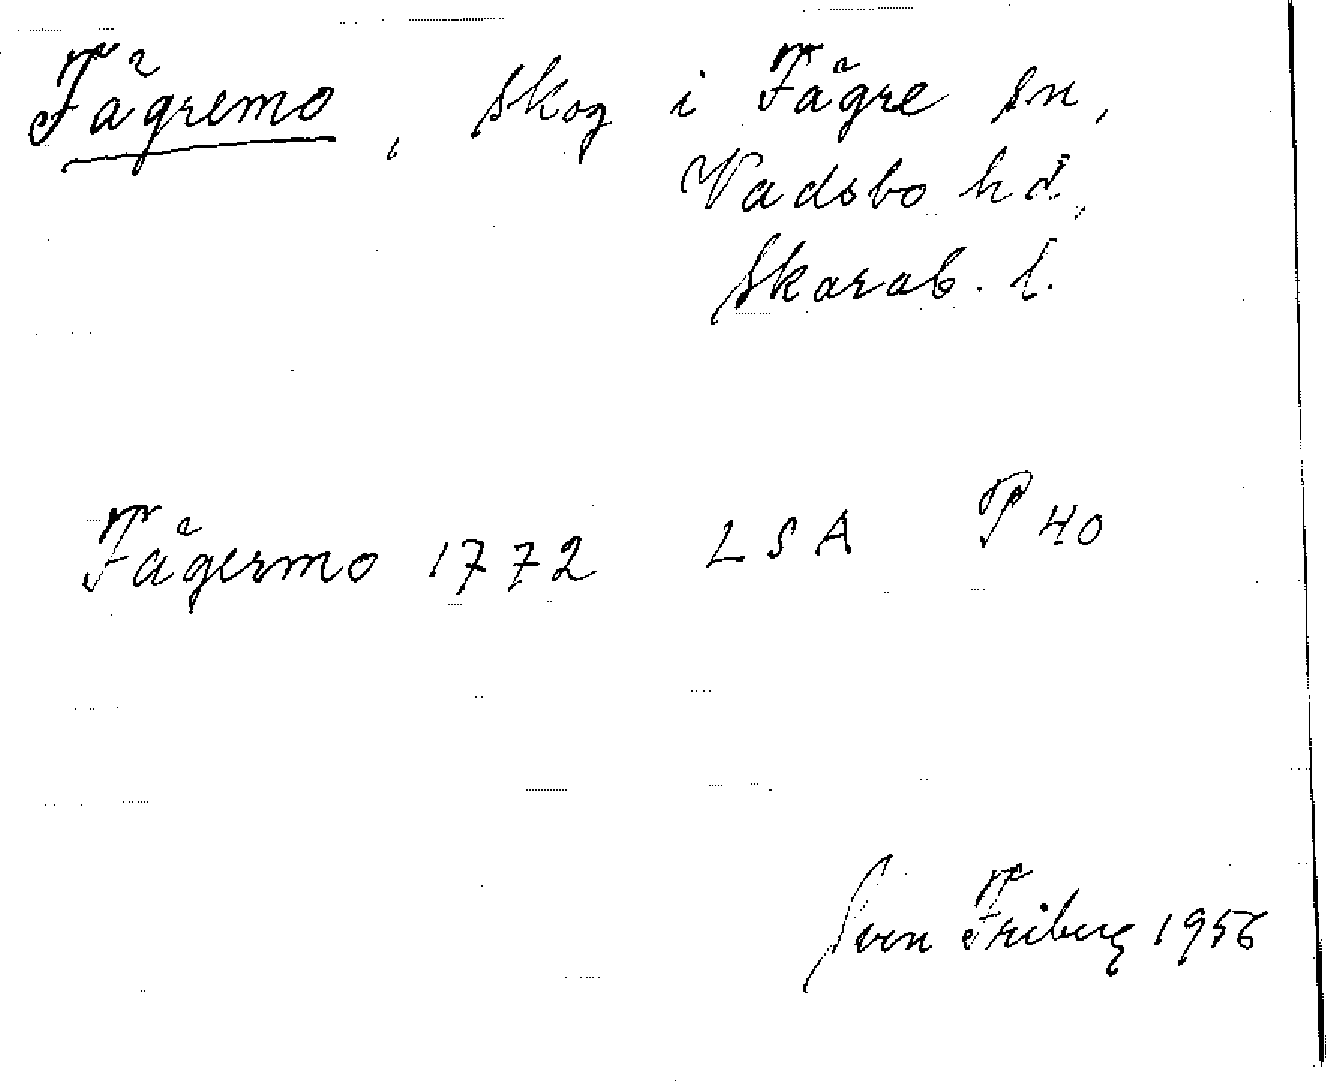 Fägremo, skog i Fägre sn,
Vadsbo hd,
Skarab. l.
Fägermo 1772 LSA P 40
Sven Friberg 1956